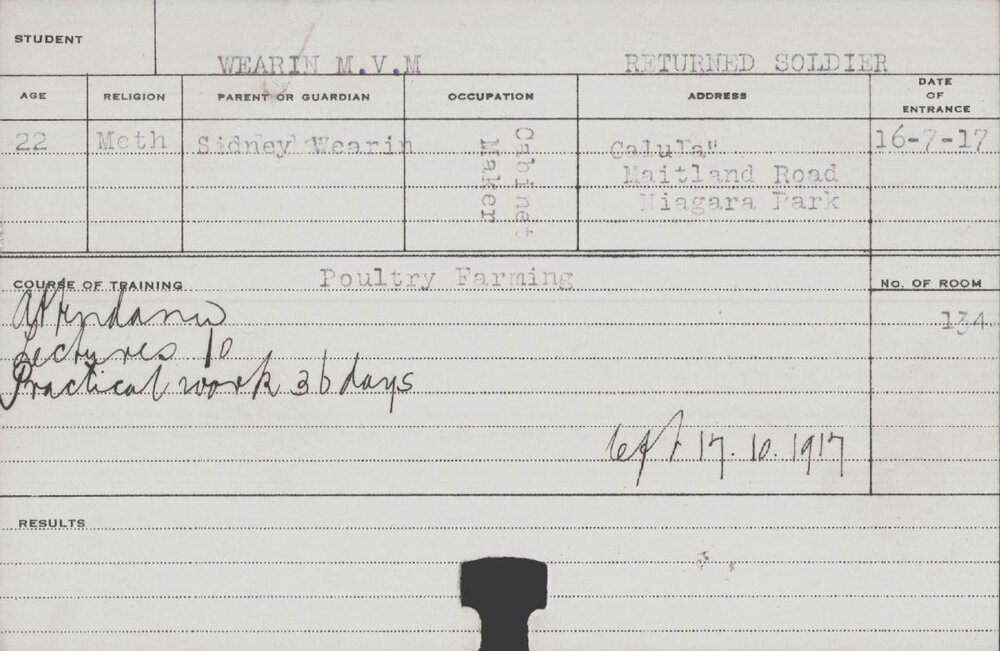 STUDENT
WEARIN M.V.M RETURNED SOLDIER
AGE RELIGION PARENT OR GUARDIAN OCCUPATION ADDRESS DATE OF ENTRANCE
22 Meth Sidney Wearin Cabinet Maker Calula" 16-7-17
Maitland Road
Niagara Park
COURSE OF TRAINING Poultry Farming No. OF ROOM
Attendance 134.
Lectures 10
Practical work 36 days
left 17.10.1917
RESULTS